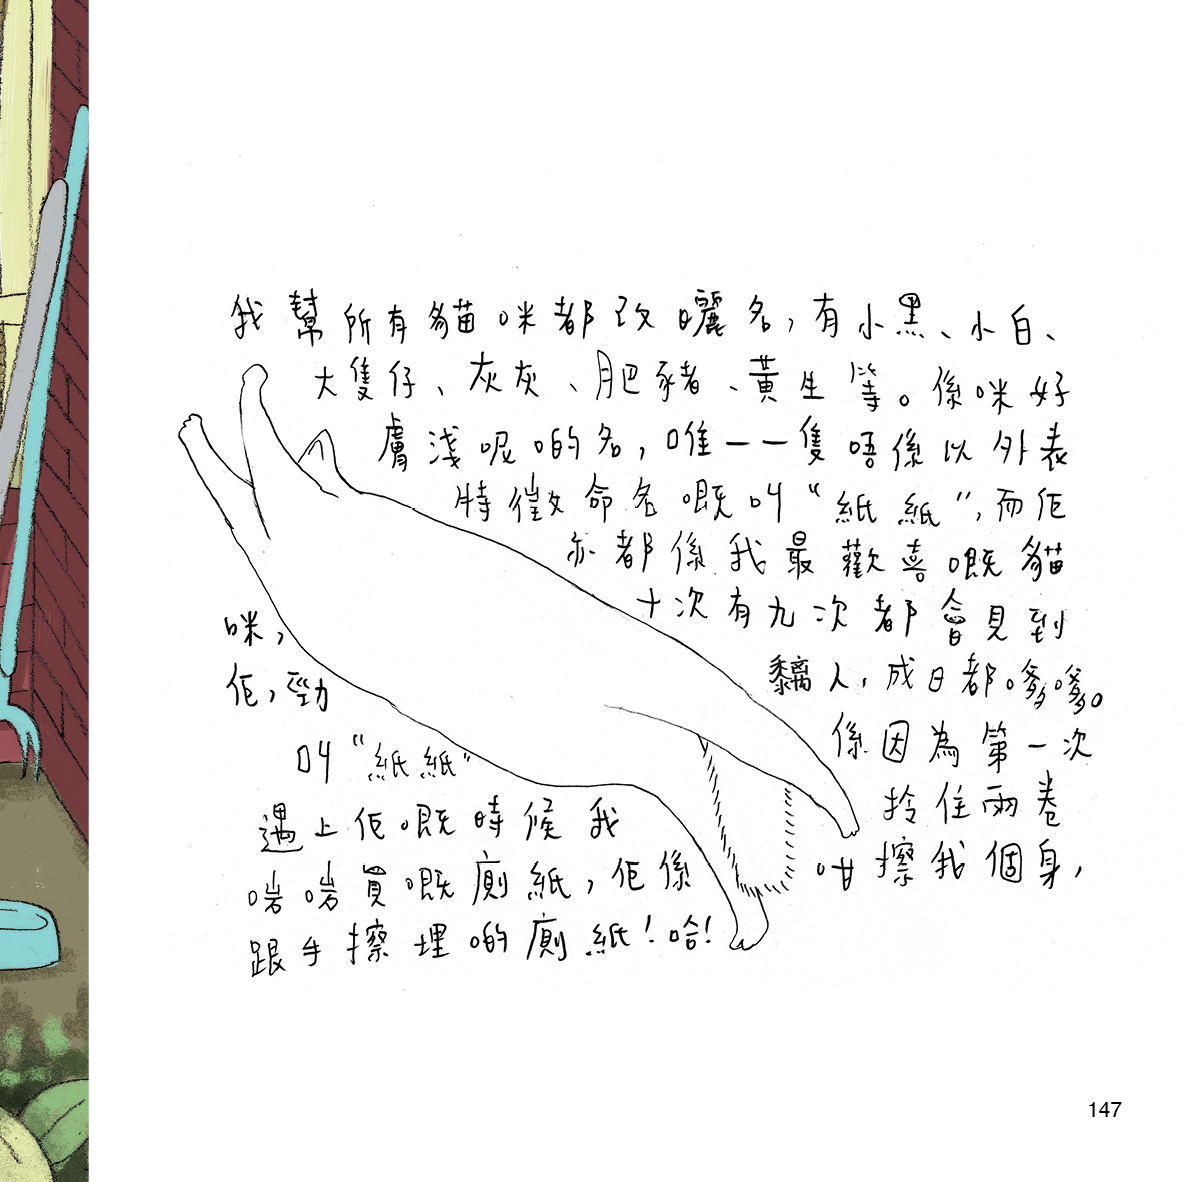 我幫所有貓咪都改曬名，有小黑、小白、
大隻仔、灰灰、肥豬、黃生等。係咪好
膚淺呢啲名，唯一一隻唔係以外表
特徵命名嘅叫“紙紙”，而佢
亦都係我最歡喜嘅貓
咪，十次有九次都會見到
佢，勁黐人，成日都嗲嗲。
叫“紙紙”係因為第一次
遇上佢嘅時候我拎住兩卷
啱啱買嘅廁紙，佢係咁擦我個身，
跟手擦埋啲廁紙！哈！
147